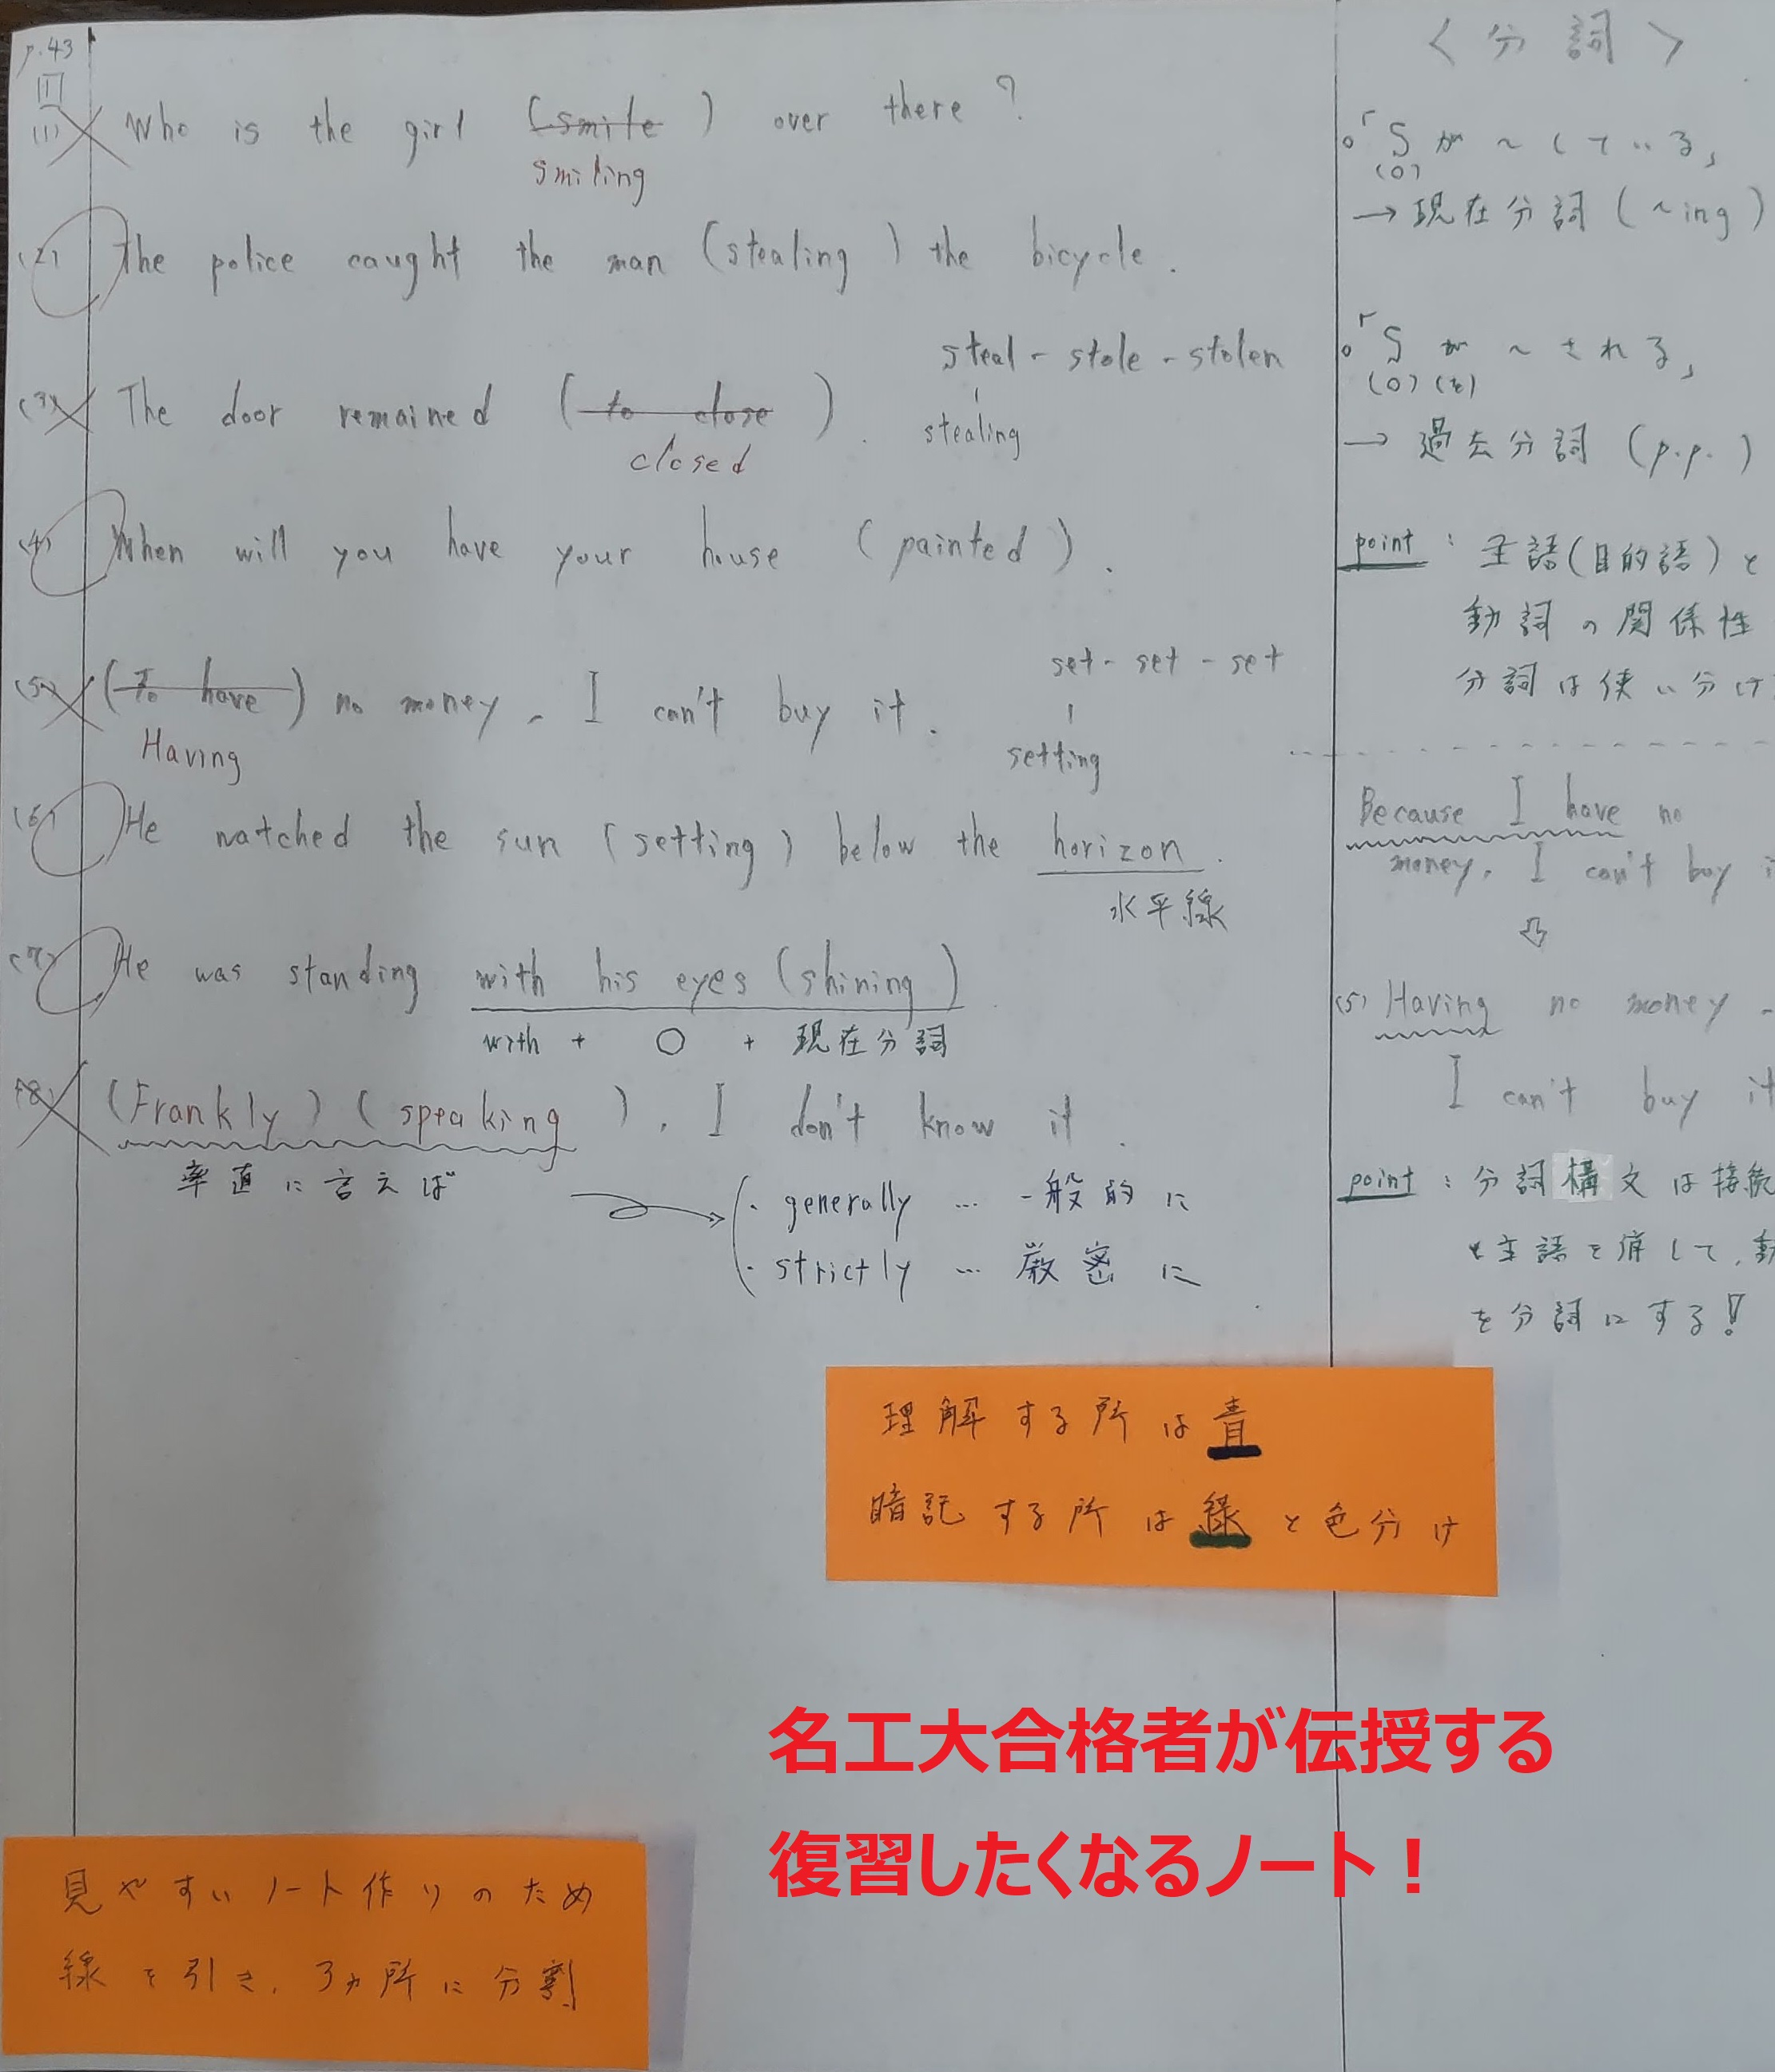 p.43
1
(1) Who is the girl (smile) over there?
smiling
(2) The police caught the man (stealing) the bicycle.
steal - stole - stolen
stealing
(3) The door remained (to close).
closed
(4) When will you have your house (painted).
(5) (To have) no money, I can't buy it.
Having
set - set - set
setting
(6) He watched the sun (setting) below the horizon.
水平線
(7) He was standing with his eyes (shining)
with + O + 現在分詞
(8) (Frankly) (speaking), I don't know it.
率直に言えば
・generally … 一般的に
・strictly … 厳密に
<分詞>
○「Sが~している」
(O)
→現在分詞(~ing)
○「Sが~される」
(O)(を)
→過去分詞(p.p.)
point : 主語(目的語)と
動詞の関係性
分詞は使い分け
Because I have no
money, I can't buy i
⇩
(5) Having no money,
I can't buy it
point : 分詞構文は接続
と主語を消して、動
を分詞にする!
理解する所は青
暗記する所は緑と色分け
名工大合格者が伝授する
復習したくなるノート!
見やすいノート作りのため
線を引き、3ヵ所に分割